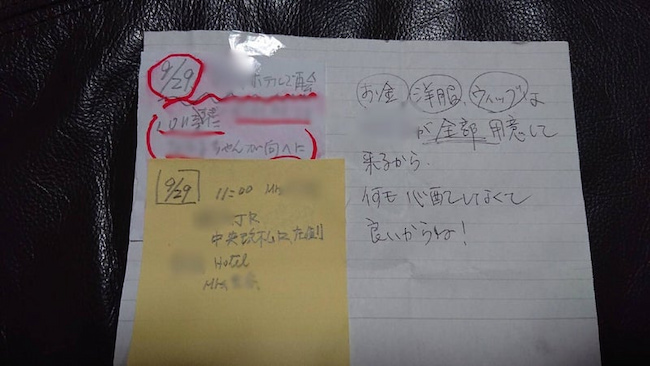 9/29
ホテルで再会
ちゃんが向へに
9/29
11:00 Mr.
JR
中央改札口、左側
Hotel
Mr.
お金、洋服、ウィッグは
が全部用意して
来るから
何も心配しなくて
良いからね!